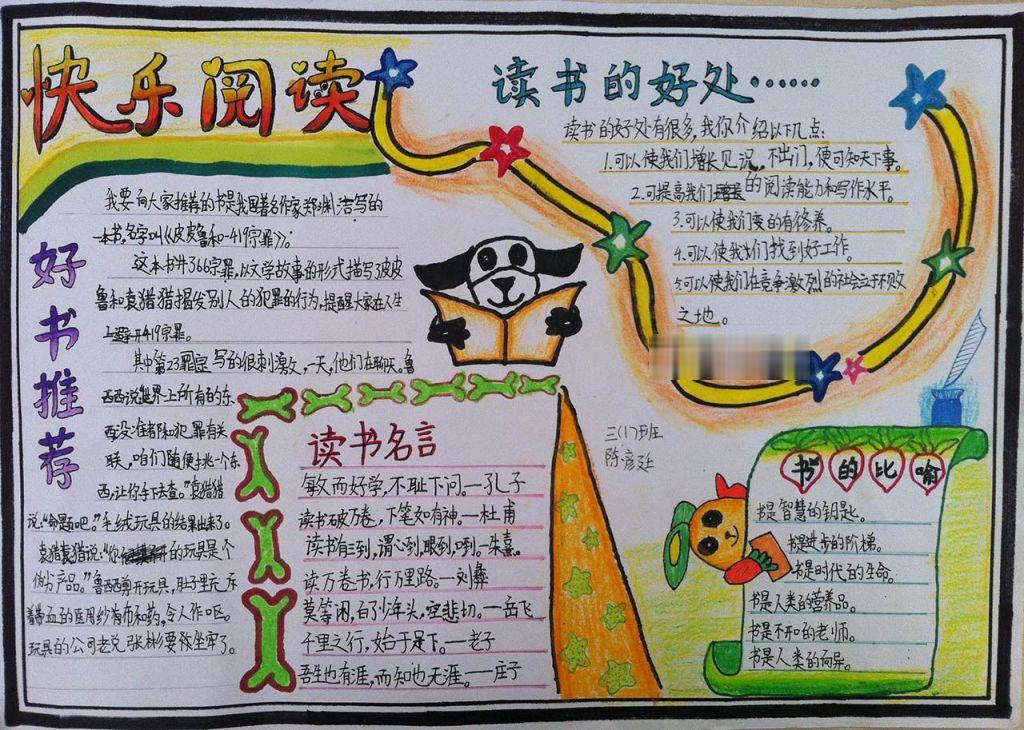 快乐阅读
好书推荐
我要向大家推荐的书是我国著名作家郑渊洁写的
一本书,名字叫《皮皮鲁和419宗罪》。
这本书共366宗罪,以文学故事的形式描写皮皮
鲁和袁猎猎揭发别人的犯罪的行为,提醒大家在人生
上避开419宗罪。
其中第23罪写的很刺激,一天,他们在聊天。鲁
西西说世界上所有的东
西没准都和犯罪有关
联,咱们随便挑一个东
西,让你手下去查。”袁猎猎
说:“命题吧。”毛绒玩具的结果出来了。
袁猎猎说:“你的玩具是个
伪劣产品。”鲁西西剪开玩具,肚子里充斥
着带血的医用纱布和药,令人作呕。
玩具的公司老兑张彬要被坐牢了。
读书名言
敏而好学,不耻下问。—孔子
读书破万卷,下笔如有神。—杜甫
读书有三到,谓心到,眼到,口到。—朱熹。
读万卷书,行万里路。—刘彝
莫等闲,白了少年头,空悲切。—岳飞
千里之行,始于足下。—老子
吾生也有涯,而知也无涯。—庄子
读书的好处……
读书的好处有很多,我你介绍以下几点:
1.可以使我们增长见识。不出门,便可知天下事。
2.可提高我们的阅读能力和写作水平。
3.可以使我们变的有修养。
4.可以使我们找到好工作。
5.可以使我们在竞争激烈的社会立不败
之地。
三(17)班
陈彦廷
书的比喻
书是智慧的钥匙。
书是进步的阶梯。
书是时代的生命。
书是人类的营养品。
书是不和的老师。
书是人类的向异。